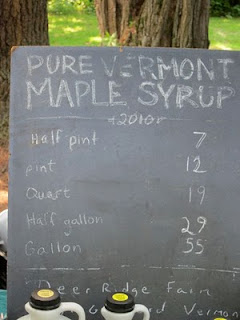 PURE VERMONT
MAPLE SYRUP
2010
Half pint 7
pint 12
Quart 19
Half gallon 29
Gallon 55
Deer Ridge Farm
Vermont